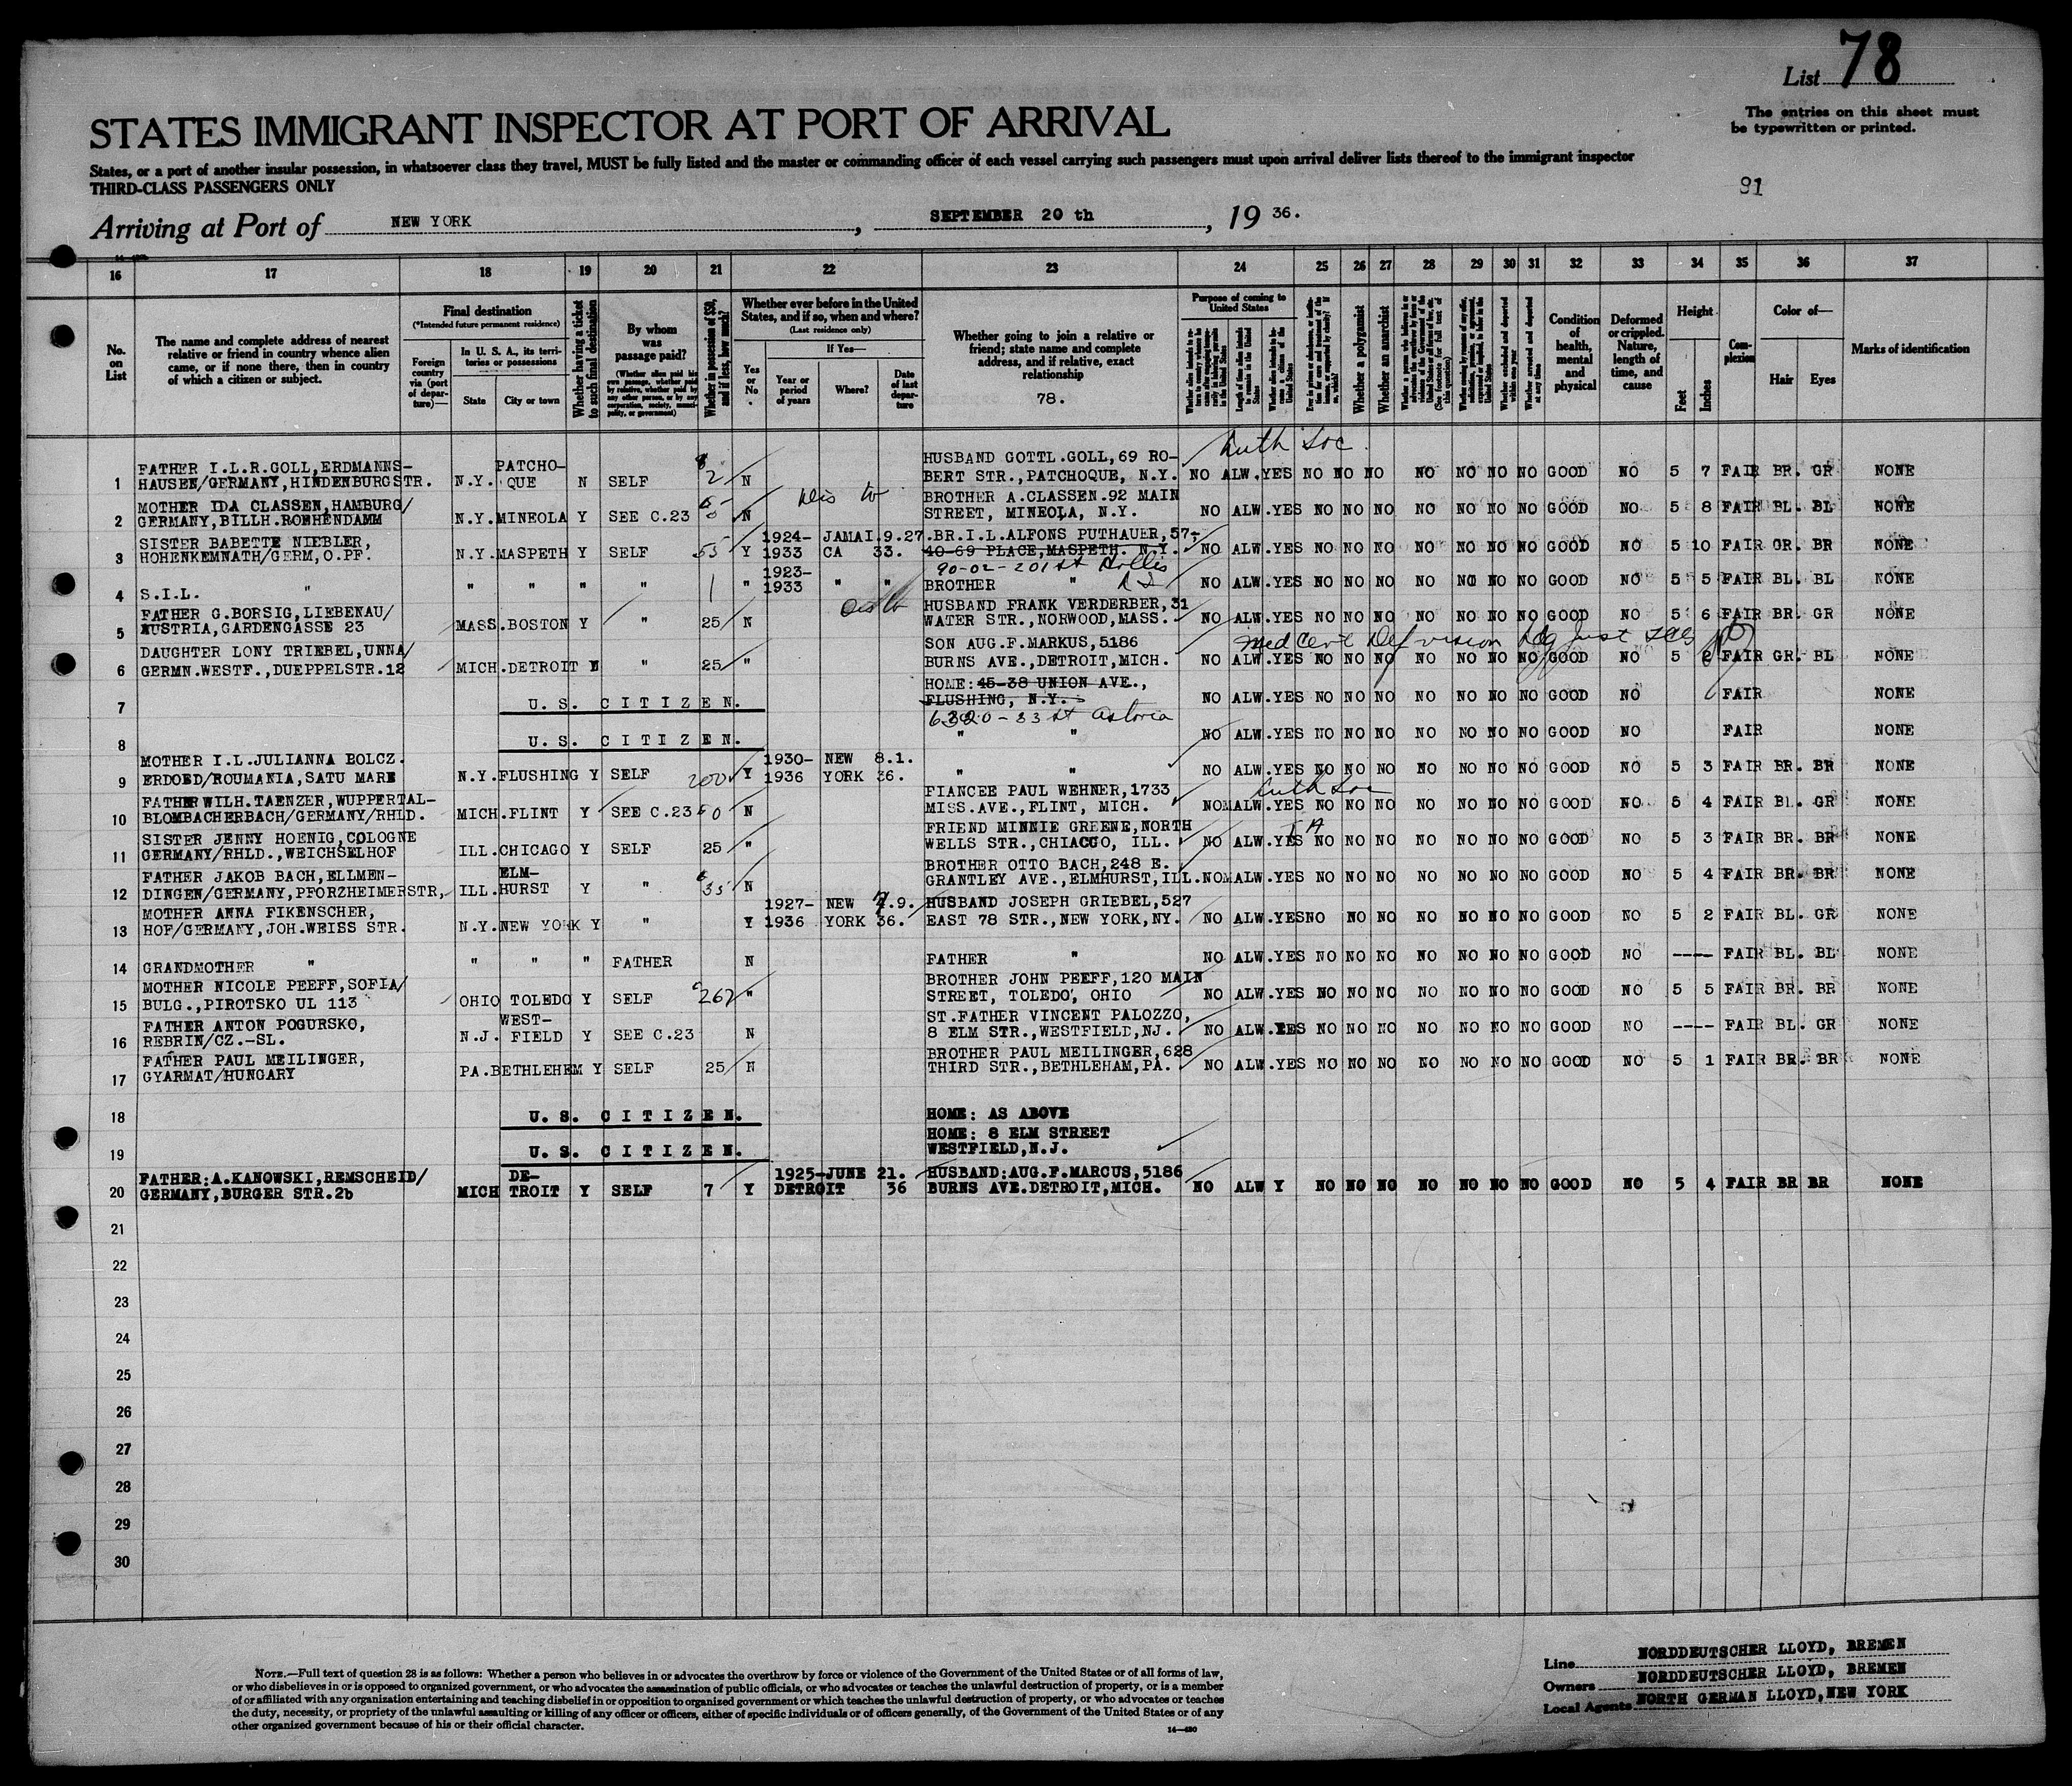 List 78
The entries on this sheet must
be typewritten or printed.
STATES IMMIGRANT INSPECTOR AT PORT OF ARRIVAL
States, or a port of another insular possession, in whatsoever class they travel, MUST be fully listed and the master or commanding officer of each vessel carrying such passengers must upon arrival deliver lists thereof to the immigrant inspector
THIRD-CLASS PASSENGERS ONLY
91
Arriving at Port of NEW YORK, SEPTEMBER 20 th, 19 36.
16 17 18 19 20 21 22 23 24 25 26 27 28 29 30 31 32 33 34 35 36 37
No. on List
The name and complete address of nearest
relative or friend in country whence alien
came, or if none there, then in country
of which a citizen or subject.
Final destination
(*Intended future permanent residence)
Foreign country via (port of departure)—
In U. S. A., its territories or possessions
State
City or town
Whether having a ticket to such final destination
By whom was passage paid?
(Whether alien paid his own passage, whether paid by relative, whether paid by any other person, or by any corporation, society, municipality, or government)
Whether in possession of $50, and if less, how much?
Whether ever before in the United
States, and if so, when and where?
(Last residence only)
Yes or No
If Yes—
Year or period of years
Where?
Date of last departure
Whether going to join a relative or
friend; state name and complete
address, and if relative, exact
relationship
78.
Purpose of coming to United States
Whether a polygamist
Whether an anarchist
Condition of health, mental and physical
Deformed or crippled. Nature, length of time, and cause
Height
Feet
Inches
Complexion
Color of—
Hair
Eyes
Marks of identification
Auth Soc
1 FATHER I.L.R.GOLL,ERDMANNS-
HAUSEN/GERMANY,HINDENBURGSTR. N.Y. PATCHO-
QUE N SELF 2 N HUSBAND GOTTL.GOLL,69 RO-
BERT STR.,PATCHOQUE, N.Y. NO ALW.YES NO NO NO NO NO NO NO GOOD NO 5 7 FAIR BR. GR NONE
2 MOTHER IDA CLASSEN,HAMBURG/
GERMANY,BILLH.ROEHENDAMM N.Y. MINEOLA Y SEE C.23 N BROTHER A.CLASSEN.92 MAIN
STREET, MINEOLA, N.Y. NO ALW.YES NO NO NO NO NO NO NO GOOD NO 5 8 FAIR BL. BL NONE
3 SISTER BABETTE NIEBLER,
HOHENKEMNATH/GERM,O.PF. N.Y. MASPETH Y SELF 55 Y 1924-
1933 JAMAI
CA 9.27.
33. BR.I.L.ALFONS PUTHAUER,57-
40-69 PLACE,MASPETH. N.Y. NO ALW.YES NO NO NO NO NO NO NO GOOD NO 5 10 FAIR GR. BR NONE
90-02-201 st Hollis
L I
4 S.I.L. " " " " " 1 " 1923-
1933 " " BROTHER " NO ALW.YES NO NO NO NO NO NO NO GOOD NO 5 5 FAIR BL. BL NONE
5 FATHER G.BORSIG,LIEBENAU/
AUSTRIA,GARDENGASSE 23 MASS. BOSTON Y " 25 N HUSBAND FRANK VERDERBER,31
WATER STR.,NORWOOD,MASS. NO ALW.YES NO NO NO NO NO NO NO GOOD NO 5 6 FAIR BR. GR NONE
Med Cert Def vision
6 DAUGHTER LONY TRIEBEL,UNNA/
GERMN.WESTF.,DUEPPELSTR.12 MICH. DETROIT N " 25 " SON AUG.F.MARKUS,5186
BURNS AVE.,DETROIT,MICH. NO ALW.YES NO NO NO NO NO NO NO GOOD NO 5 2 FAIR GR. BL NONE
7 U.S. CITIZEN. HOME: 45-38 UNION AVE.,
FLUSHING, N.Y. NO ALW.YES NO NO NO NO NO NO NO GOOD NO FAIR NONE
Astoria
8 U.S. CITIZEN. " " NO ALW.YES NO NO NO NO NO NO NO GOOD NO FAIR NONE
9 MOTHER I.L.JULIANNA BOLCZ.
ERDOED/ROUMANIA,SATU MARE N.Y. FLUSHING Y SELF 200 Y 1930-
1936 NEW
YORK 8.1.
36. " " NO ALW.YES NO NO NO NO NO NO NO GOOD NO 5 3 FAIR BR. BR NONE
Auth Soc
10 FATHER WILH.TAENZER,WUPPERTAL-
BLOMBACHERBACH/GERMANY/RHLD. MICH. FLINT Y SEE C.23 50 N FIANCEE PAUL WEHNER,1733
MISS.AVE.,FLINT, MICH. NO ALW.YES NO NO NO NO NO NO NO GOOD NO 5 4 FAIR BL. GR NONE
11 SISTER JENNY HOENIG,COLOGNE
GERMANY/RHLD.,WEICHSELHOF ILL. CHICAGO Y SELF 25 " FRIEND MINNIE GREENE,NORTH
WELLS STR.,CHIACGO, ILL. NO ALW.YES NO NO NO NO NO NO NO GOOD NO 5 3 FAIR BR. BR NONE
12 FATHER JAKOB BACH,ELLMEN-
DINGEN/GERMANY,PFORZHEIMERSTR, ILL. ELM-
HURST Y " 35 N BROTHER OTTO BACH,248 E.
GRANTLEY AVE.,ELMHURST,ILL. NO ALW.YES NO NO NO NO NO NO NO GOOD NO 5 4 FAIR BR. BR NONE
13 MOTHER ANNA FIKENSCHER,
HOF/GERMANY,JOH.WEISS STR. N.Y. NEW YORK Y " Y 1927-
1936 NEW
YORK 7.9.
36. HUSBAND JOSEPH GRIEBEL,527
EAST 78 STR.,NEW YORK,NY. NO ALW.YES NO NO NO NO NO NO NO GOOD NO 5 2 FAIR BL. GR NONE
14 GRANDMOTHER " " " " FATHER N FATHER " NO ALW.YES NO NO NO NO NO NO NO GOOD NO ---- FAIR BL. BL NONE
15 MOTHER NICOLE PEEFF,SOFIA/
BULG.,PIROTSKO UL 113 OHIO TOLEDO Y SELF 262 " BROTHER JOHN PEEFF,120 MAIN
STREET, TOLEDO, OHIO NO ALW.YES NO NO NO NO NO NO NO GOOD NO 5 5 FAIR BR. BR NONE
16 FATHER ANTON POGURSKO,
REBRIN/CZ.-SL. N.J. WEST-
FIELD Y SEE C.23 N ST.FATHER VINCENT PALOZZO,
8 ELM STR.,WESTFIELD,NJ. NO ALW.YES NO NO NO NO NO NO NO GOOD NO ---- FAIR BL. GR NONE
17 FATHER PAUL MEILINGER,
GYARMAT/HUNGARY PA. BETHLEHEM Y SELF 25 N BROTHER PAUL MEILINGER,628
THIRD STR.,BETHLEHAM,PA. NO ALW.YES NO NO NO NO NO NO NO GOOD NO 5 1 FAIR BR. BR NONE
18 U.S. CITIZEN. HOME: AS ABOVE
19 U.S. CITIZEN. HOME: 8 ELM STREET
WESTFIELD,N.J.
20 FATHER:A.KANOWSKI,REMSCHEID/
GERMANY,BURGER STR.2b MICH DE-
TROIT Y SELF 7 Y 1925-JUNE 21.
DETROIT 36 HUSBAND:AUG.F.MARCUS,5186
BURNS AVE.DETROIT,MICH. NO ALW Y NO NO NO NO NO NO NO GOOD NO 5 4 FAIR BR BR NONE
21
22
23
24
25
26
27
28
29
30
NOTE.—Full text of question 28 is as follows: Whether a person who believes in or advocates the overthrow by force or violence of the Government of the United States or of all forms of law,
or who disbelieves in or is opposed to organized government, or who advocates the assassination of public officials, or who advocates or teaches the unlawful destruction of property, or is a member
of or affiliated with any organization entertaining and teaching disbelief in or opposition to organized government or which teaches the unlawful destruction of property, or who advocates or teaches
the duty, necessity, or propriety of the unlawful assaulting or killing of any officer or officers, either of specific individuals or of officers generally, of the Government of the United States or of any
other organized government because of his or their official character.
14—430
Line NORDDEUTSCHER LLOYD, BREMEN
Owners NORDDEUTSCHER LLOYD, BREMEN
Local Agents NORTH GERMAN LLOYD,NEW YORK